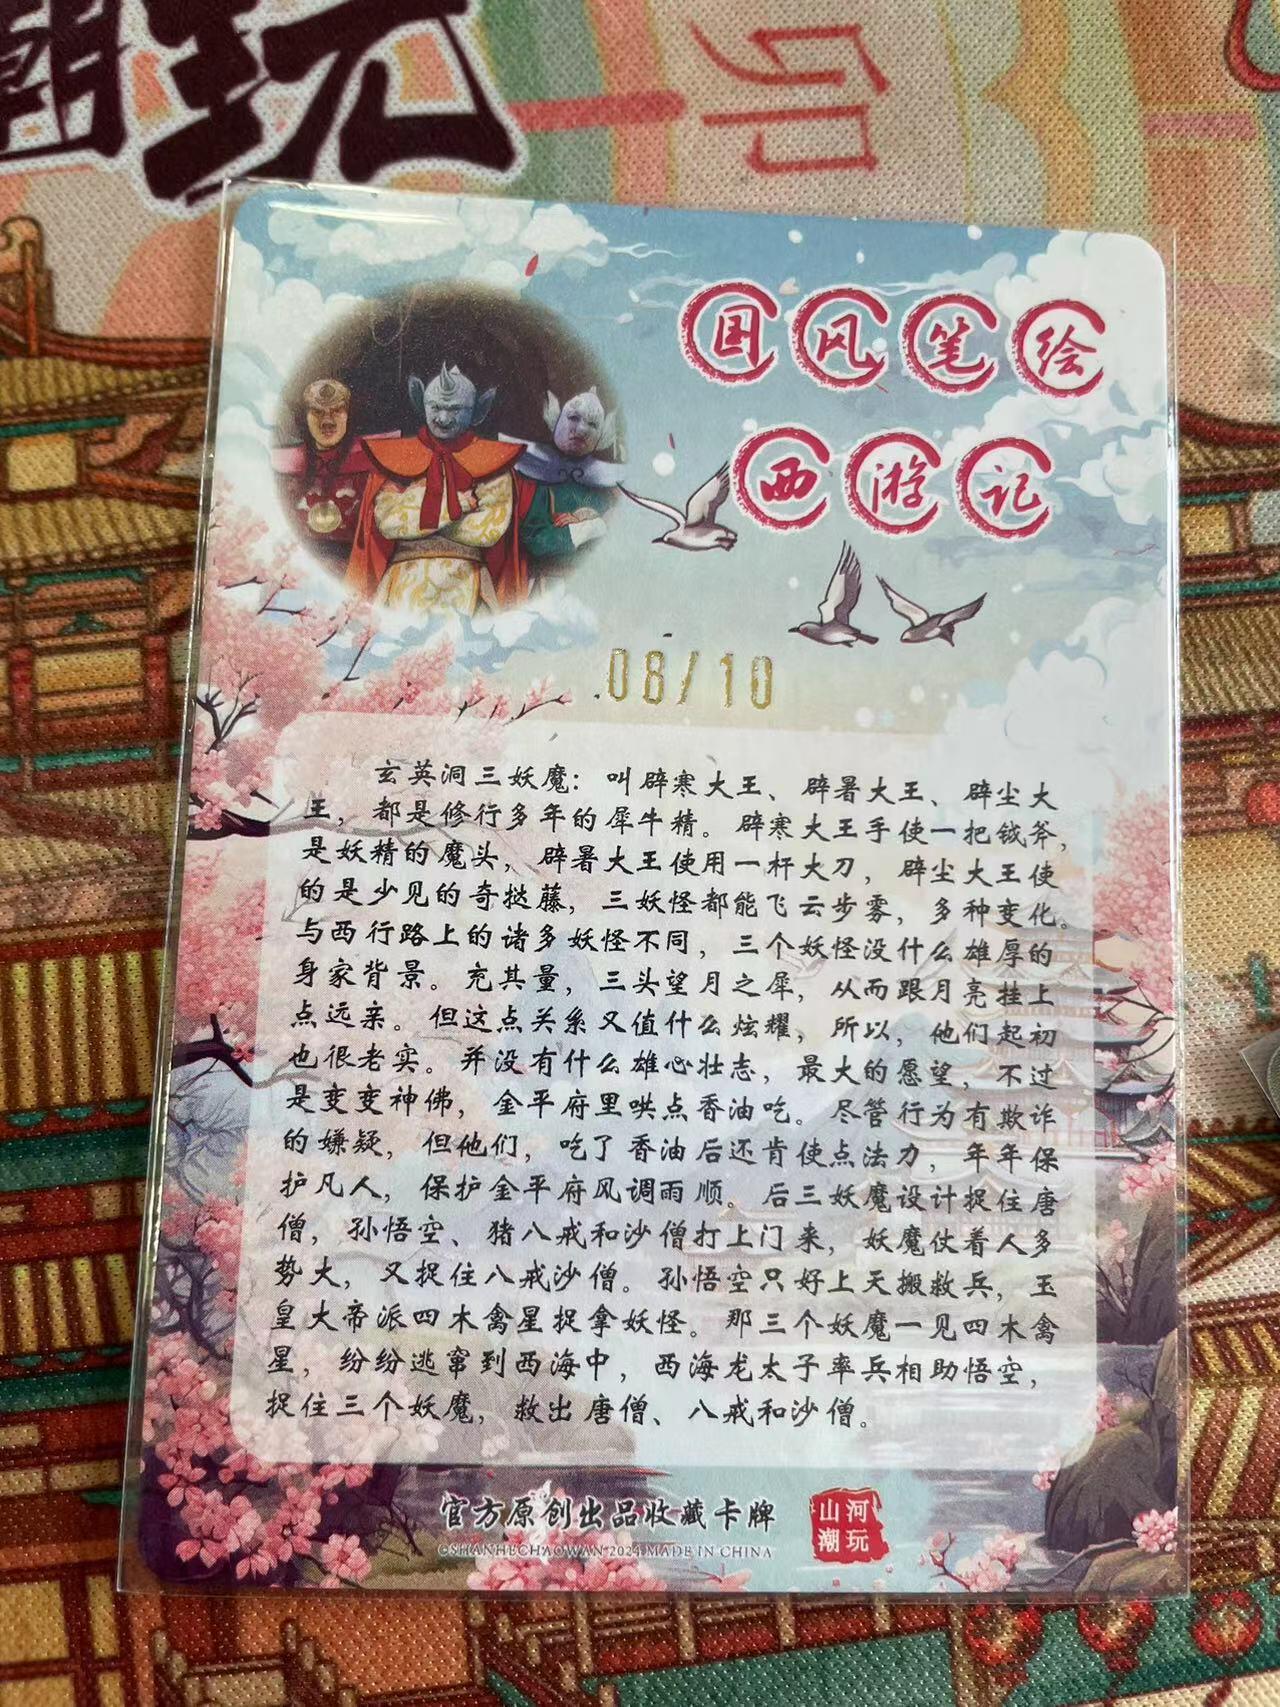 潮玩
卯
国风笔绘
西游记
08/10
玄英洞三妖魔：叫辟寒大王、辟暑大王、辟尘大
王，都是修行多年的犀牛精。辟寒大王手使一把钺斧，
是妖精的魔头，辟暑大王使用一杆大刀，辟尘大王使
的是少见的奇挞藤，三妖怪都能飞云步雾，多种变化。
与西行路上的诸多妖怪不同，三个妖怪没什么雄厚的
身家背景。充其量，三头望月之犀，从而跟月亮挂上
点远亲。但这点关系又值什么炫耀，所以，他们起初
也很老实。并没有什么雄心壮志，最大的愿望，不过
是变变神佛，金平府里哄点香油吃。尽管行为有欺诈
的嫌疑，但他们，吃了香油后还肯使点法力，年年保
护凡人，保护金平府风调雨顺。后三妖魔设计捉住唐
僧，孙悟空、猪八戒和沙僧打上门来，妖魔仗着人多
势大，又捉住八戒沙僧。孙悟空只好上天搬救兵，玉
皇大帝派四木禽星捉拿妖怪。那三个妖魔一见四木禽
星，纷纷逃窜到西海中，西海龙太子率兵相助悟空，
捉住三个妖魔，救出唐僧、八戒和沙僧。
官方原创出品收藏卡牌
©SHANHECHAOWAN 2024 MADE IN CHINA
山河
潮玩